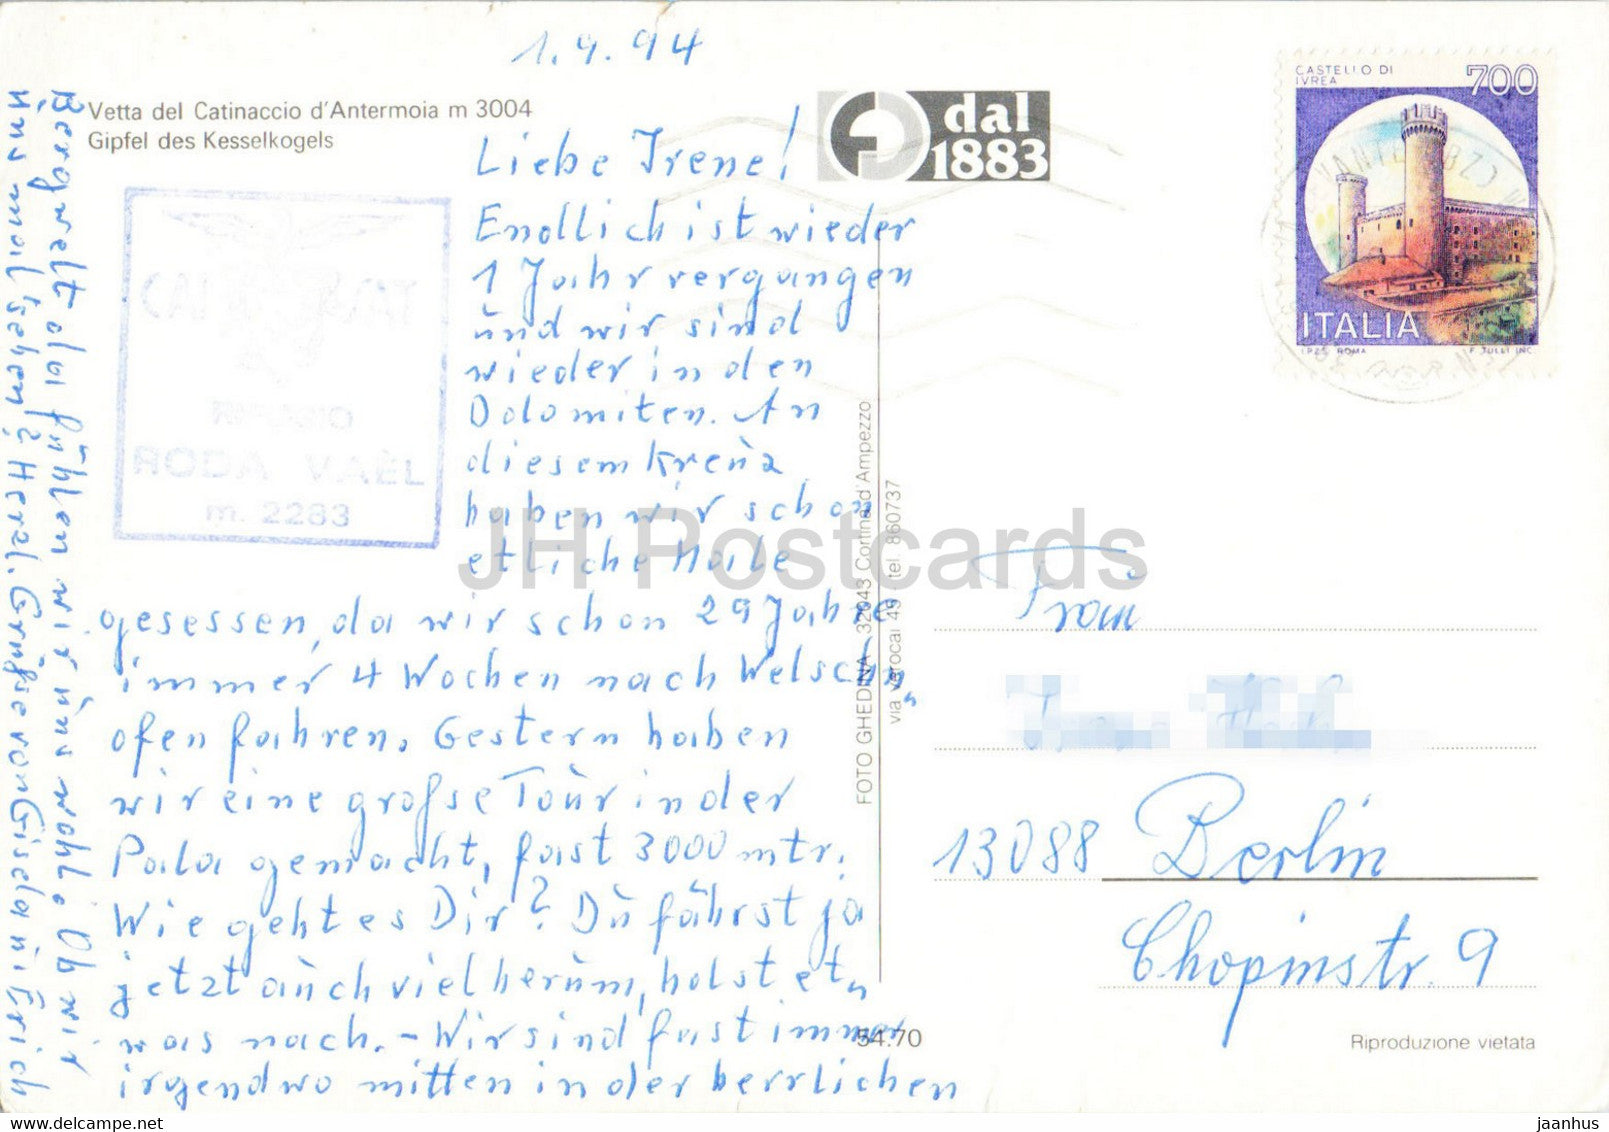 1.9.94
Vetta del Catinaccio d'Antermoia m 3004
Gipfel des Kesselkogels
dal
1883
CASTELLO DI
IVREA
700
ITALIA
I.P.Z.S. ROMA
F. TULLI INC.
RIFUGIO
RODA VAÈL
m. 2283
Liebe Irene!
Endlich ist wieder
1 Jahr vergangen
und wir sind
wieder in den
Dolomiten. An
diesem Kreuz
haben wir schon
etliche Male
gesessen, da wir schon 29 Jahre
immer 4 Wochen nach Welschn„
ofen fahren. Gestern haben
wir eine große Tour in der
Pala gemacht, fast 3000 mtr.
Wie geht es Dir? Du fährst ja
jetzt auch viel herum, holst et„
was nach. - Wir sind fast immer
irgendwo mitten in der herrlichen
Bergwelt da fühlen wir uns wohl. Ob wir
uns mal sehen? Herzl. Grüße von Gisela u. Erich
FOTO GHEDINA 32043 Cortina d'Ampezzo
via Verocai 49 tel. 860737
54.70
Frau
13088 Berlin
Chopinstr. 9
Riproduzione vietata
JH Postcards
jaanhus